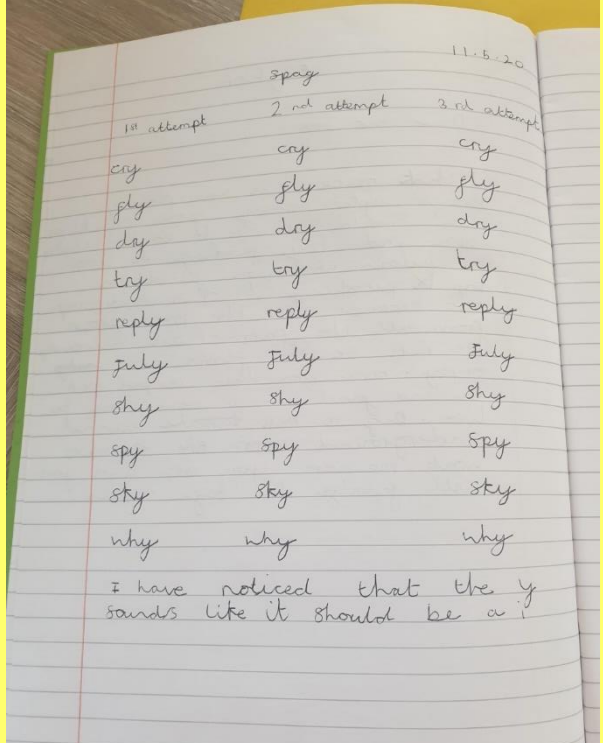 11.5.20
spag
1st attempt 2nd attempt 3rd attempt
cry cry cry
fly fly fly
dry dry dry
try try try
reply reply reply
July July July
shy shy shy
spy spy spy
sky sky sky
why why why
I have noticed that the y
sounds like it should be a i